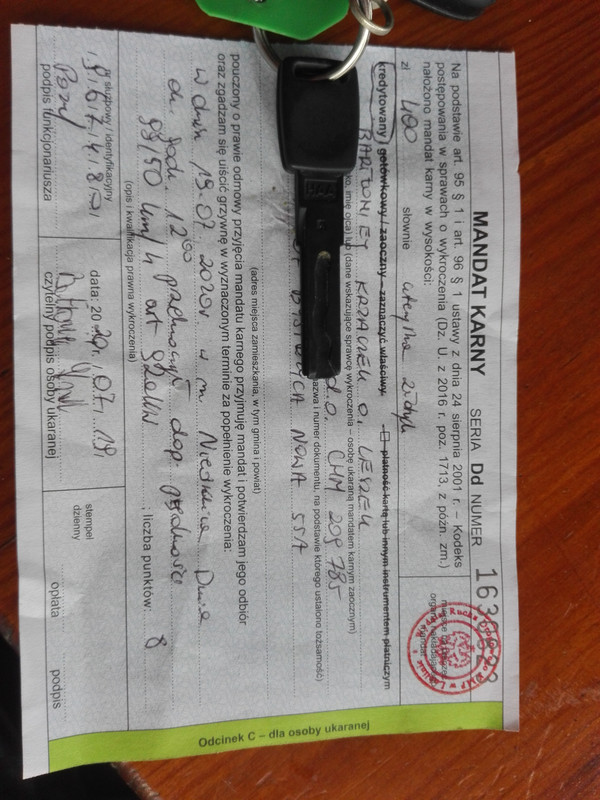 MANDAT KARNY SERIA Dd NUMER
Na podstawie art. 95 § 1 i art. 96 § 1 ustawy z dnia 24 sierpnia 2001 r. – Kodeks
postępowania w sprawach o wykroczenia (Dz. U. z 2016 r. poz. 1713, z późn. zm.)
nałożono mandat karny w wysokości:
zł 400 słownie
kredytowany / gotówkowy / zaoczny – zaznaczyć właściwy płatność kartą lub innym instrumentem płatniczym
BARTŁOMIEJ O. LESZEK
imię ojca) lub (dane wskazujące sprawcę wykroczenia – osobę ukaraną mandatem karnym zaocznym)
D.O. CHM 209785
nazwa i numer dokumentu, na podstawie którego ustalono tożsamość)
NOWA 55A
(adres miejsca zamieszkania, w tym gmina i powiat)
pouczony o prawie odmowy przyjęcia mandatu karnego przyjmuję mandat i potwierdzam jego odbiór
oraz zgadzam się uiścić grzywnę w wyznaczonym terminie za popełnienie wykroczenia:
w dniu 19.07.2020r w m.
ok. godz. 12⁰⁰ dop. prędkość
99/50 km/h art 92a kw ; liczba punktów: 8
(opis i kwalifikacja prawna wykroczenia)
nr służbowy / identyfikacyjny
podpis funkcjonariusza
data: 2020r. 07. 19
czytelny podpis osoby ukaranej
stempel
dzienny
opłata podpis
Odcinek C – dla osoby ukaranej